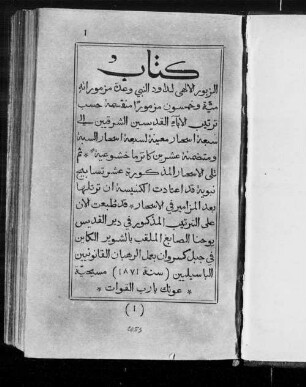 ١
كتاب
الزبور الالهي لداود النبي وعدة مزموراته
مئة وخمسون مزمورا منقسمة حسب
ترتيب الآباء القديسين الشرقيين الى
سبعة اسحار معينة لسبعة اسحار السبة
ومتضمنة عشرين كاترما خشوعية * ثم
تلى الاسحار المذكورة عشر تسابيح
نبوية قد اعتادت الكنيسة ان ترتلها
بعد المزامير في الاسحار * قد طبعت الان
على الترتيب المذكور في دير القديس
يوحنا الصابغ الملقب بالشوير الكاين
في جبل كسروان بعمل الرهبان القانونيين
الباسيليين (سنة ١٨٧١) مسيحية
* عونك يا رب القوات *
(١)